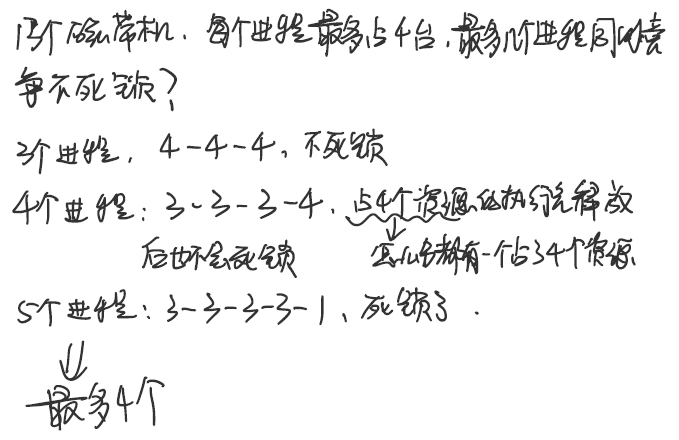 13个磁带机、每个进程最多占4台,最多几个进程同时竞
争不死锁?
3个进程, 4-4-4、不死锁
4个进程:3-3-3-4、占4个资源的执行完释放
后也不会死锁 怎么分都有一个占了4个资源
5个进程:3-3-3-3-1、死锁了.
最多4个